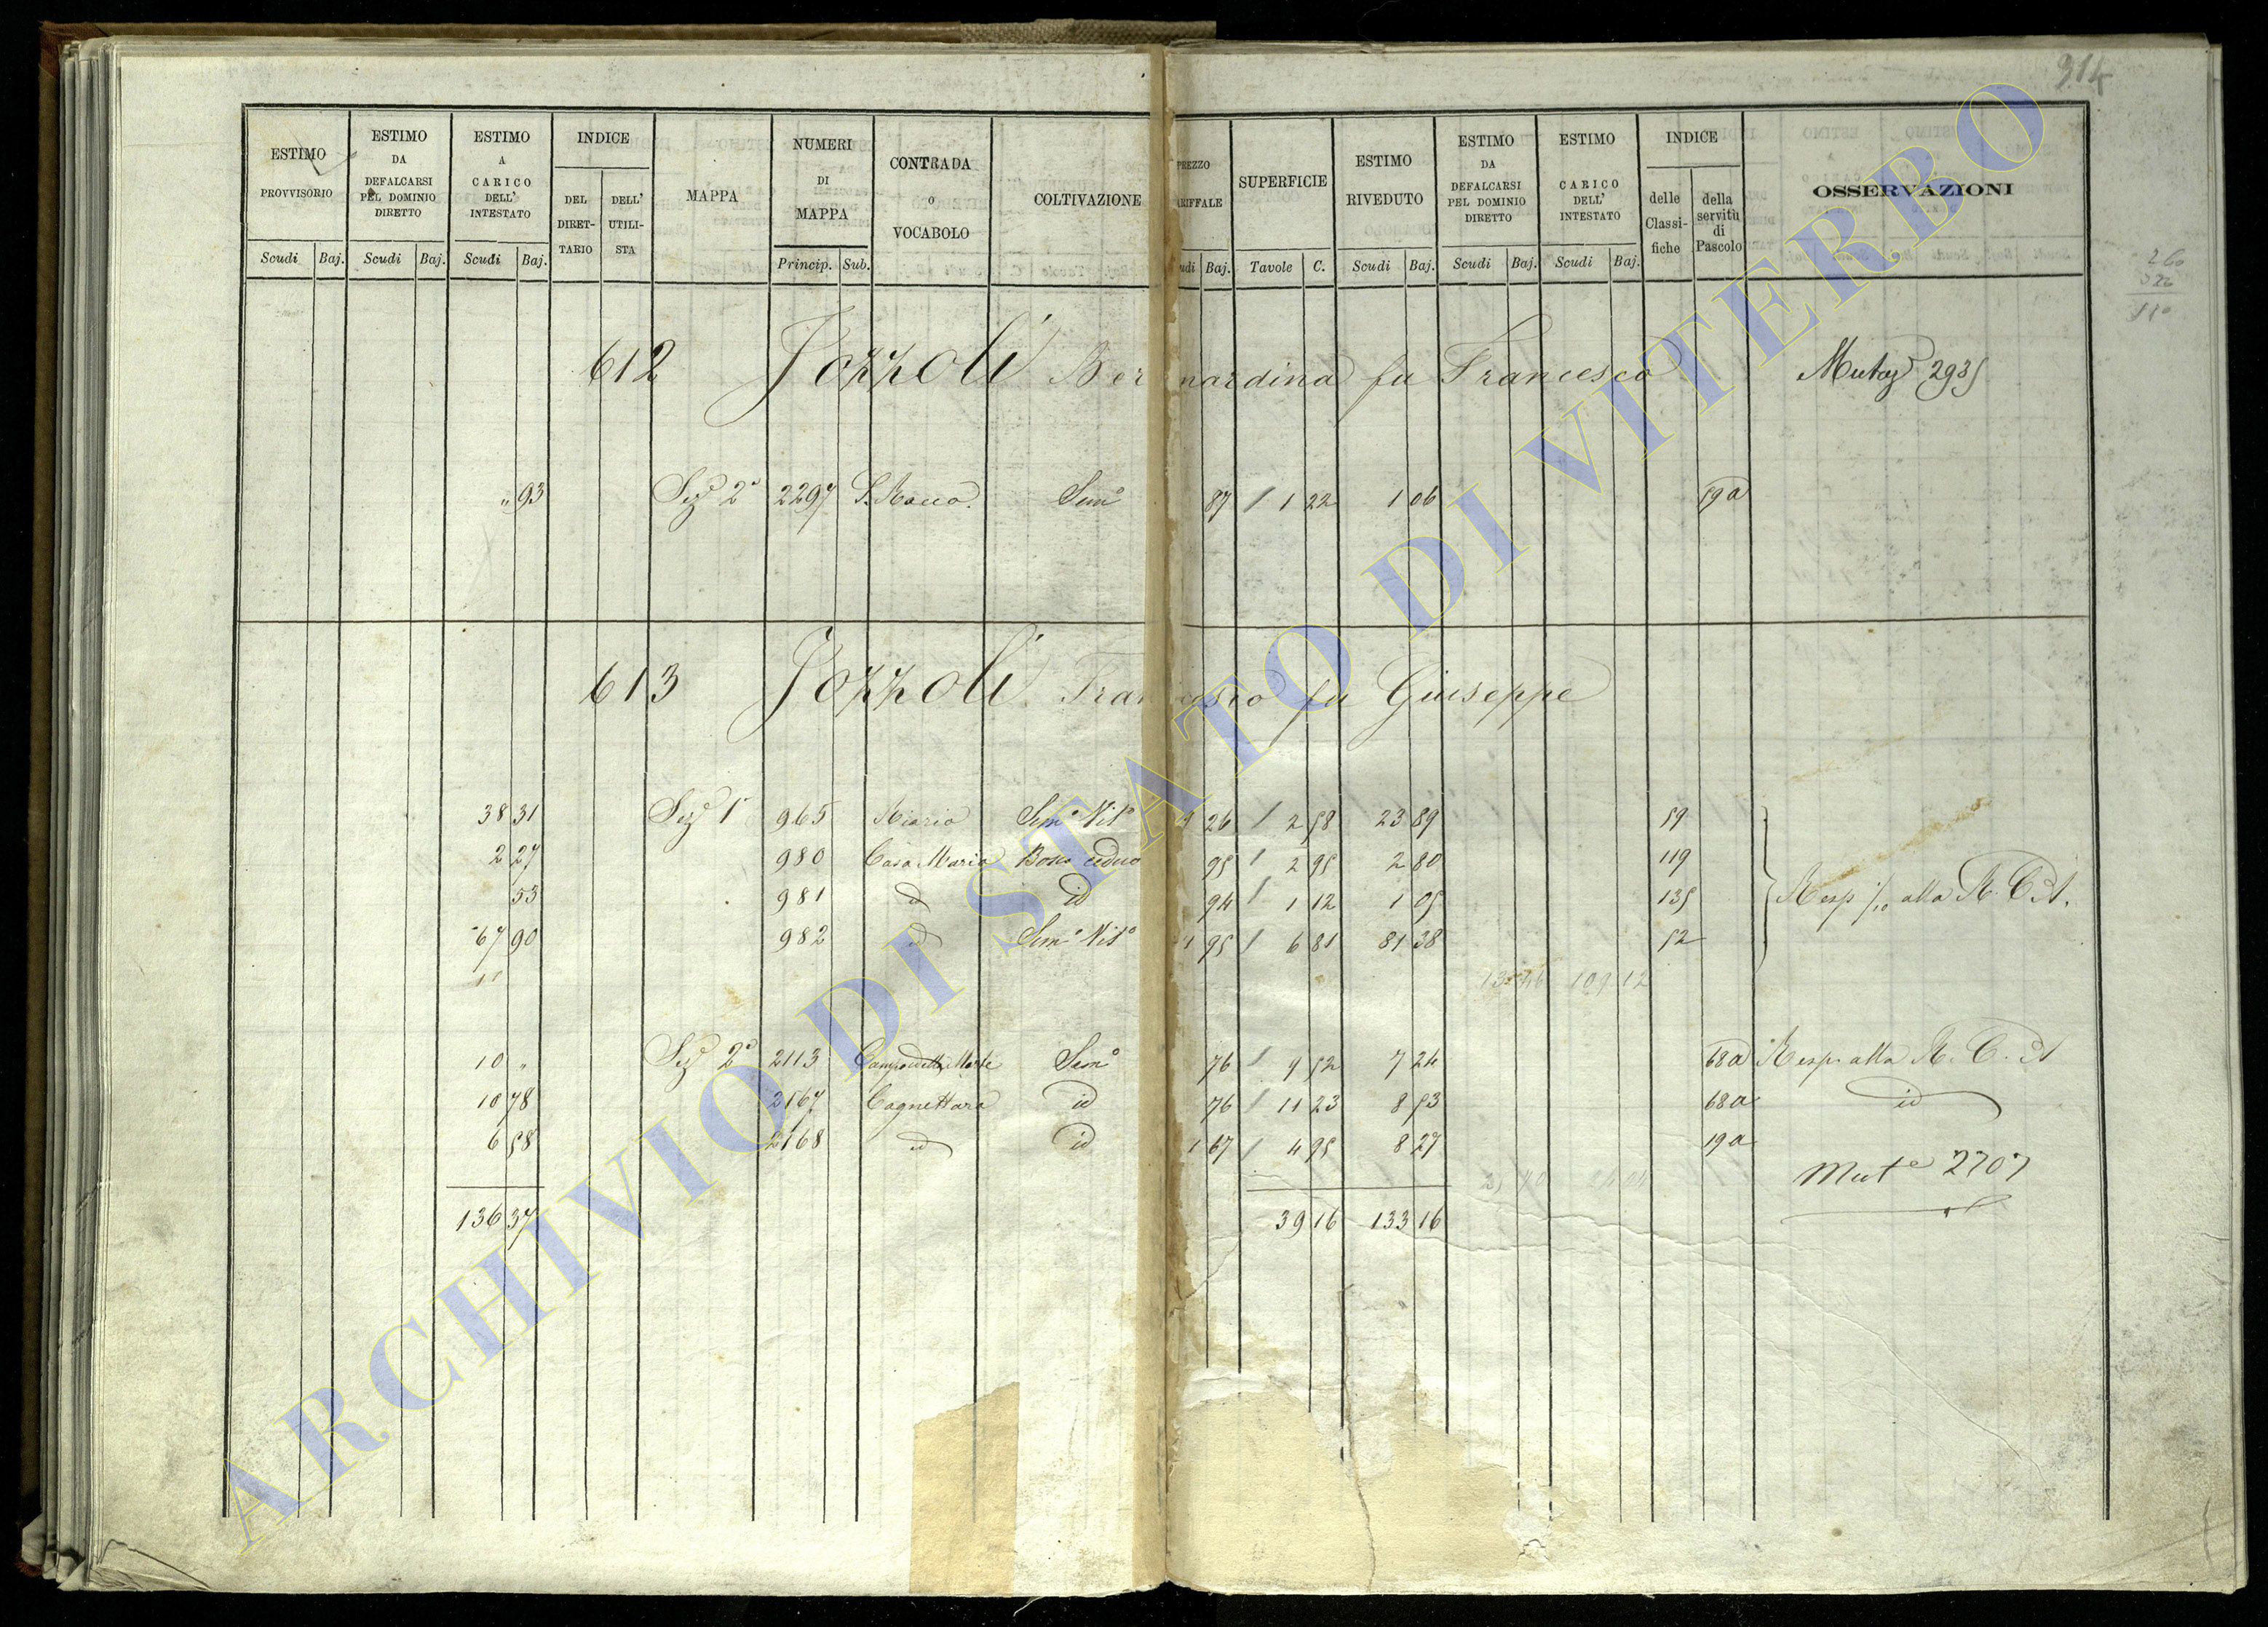 314
ESTIMO PROVVISORIO
ESTIMO DA DEFALCARSI PEL DOMINIO DIRETTO
ESTIMO A CARICO DELL' INTESTATO
INDICE
DEL DIRET-TARIO
DELL' UTILI-STA
MAPPA
NUMERI DI MAPPA
CONTRADA O VOCABOLO
COLTIVAZIONE
PREZZO
ARIFFALE
SUPERFICIE
ESTIMO RIVEDUTO
ESTIMO DA DEFALCARSI PEL DOMINIO DIRETTO
ESTIMO CARICO DELL' INTESTATO
INDICE
delle Classi-fiche
della servitù di Pascolo
OSSERVAZIONI
Scudi Baj. Scudi Baj. Scudi Baj. Princip. Sub. udi Baj. Tavole C. Scudi Baj. Scudi Baj. Scudi Baj.
612 Jozzoli Bernardina fu Francesco 2935
" 93 Sez 2ª 2297 S. Rocco Sem° 87 / 1 22 1 06 19a
613 Jozzoli Francesco fu Giuseppe
38 31 Sez 1ª 965 Riario Sem° Vit° 26 / 2 58 23 89 59
2 27 980 Casa Maria Bosco ceduo 95 / 2 95 2 80 119
53 981 id id 94 / 1 12 1 05 135 Resp 1/10 alla R. C. A.
67 90 982 id Sem° Vit° 95 / 6 81 81 38 52
10 " Sez 2ª 2113 Sem° 76 / 9 52 7 24 68a Resp. alla R. C. A
10 78 2167 Cagnettara id 76 / 11 23 8 53 68a id
6 58 2168 id id 1 67 / 4 95 8 27 19a
Mut° 2707
136 37 39 16 133 16
ARCHIVIO DI STATO DI VITERBO